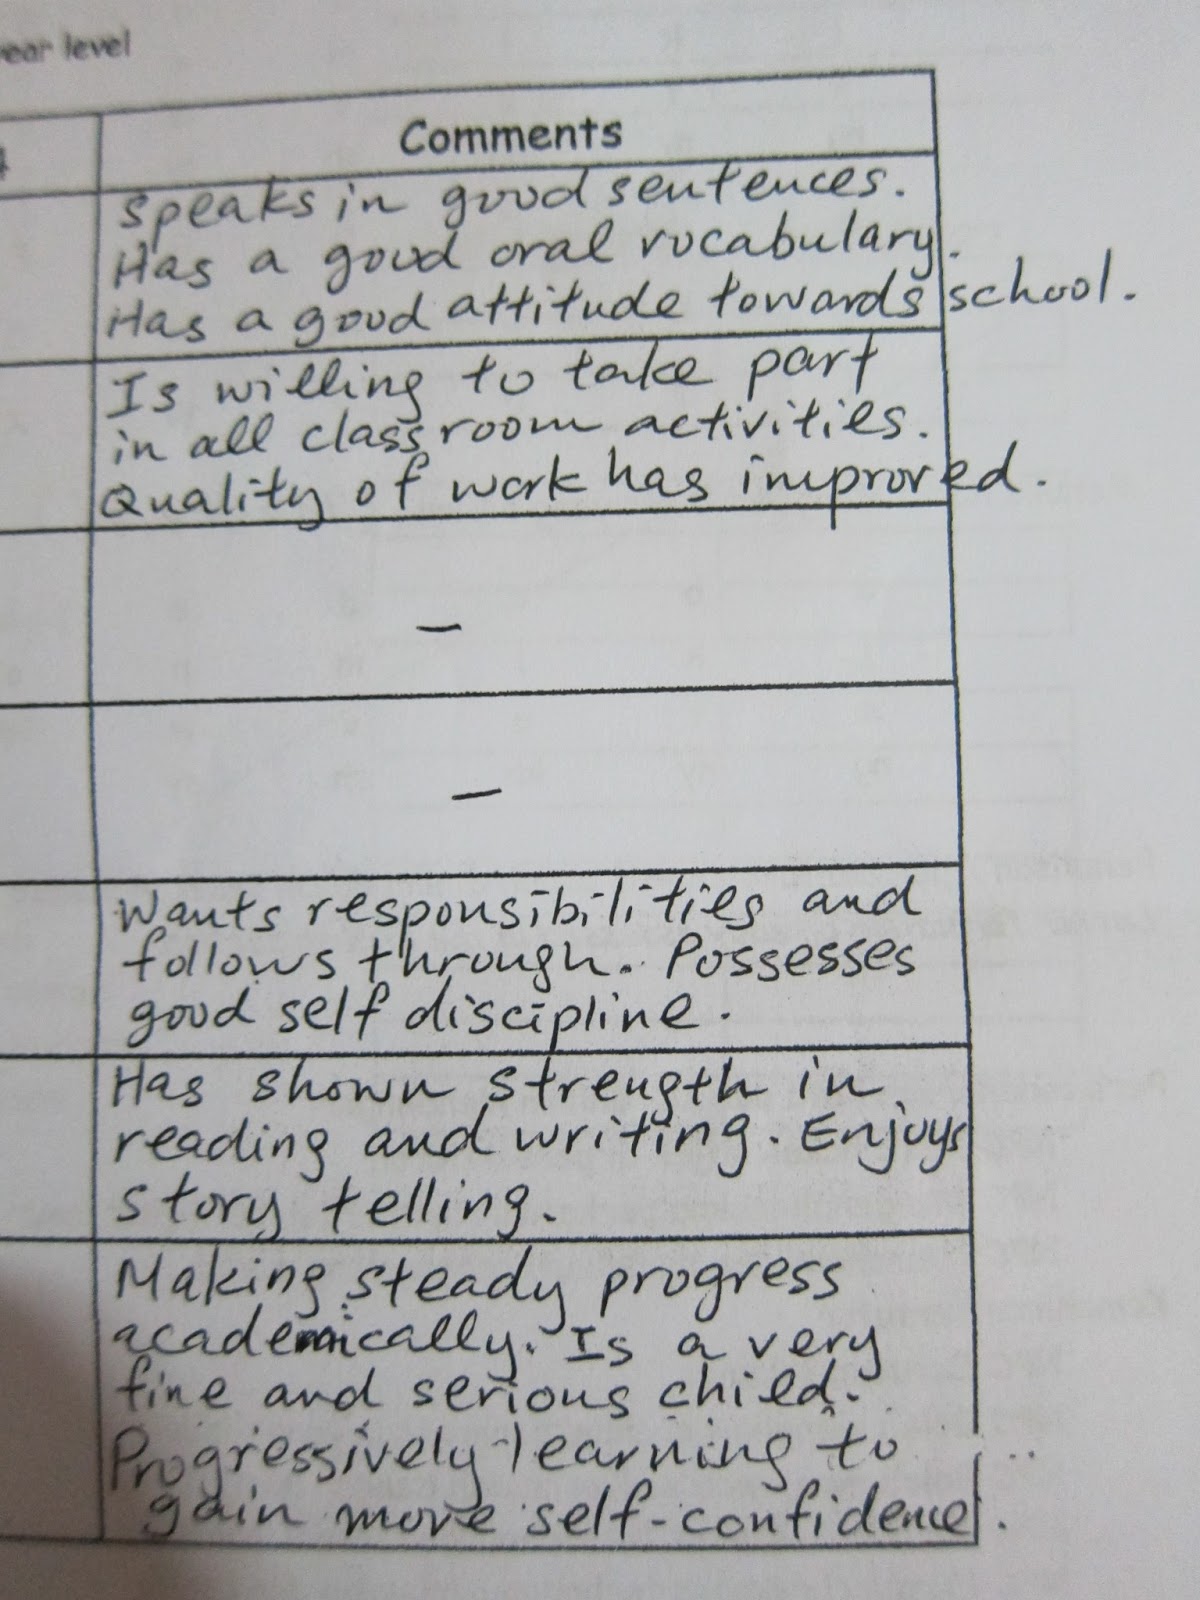 year level
Comments
speaks in good sentences.
Has a good oral vocabulary.
Has a good attitude towards school.
Is willing to take part
in all classroom activities.
Quality of work has improved.
–
–
Wants responsibilities and
follows through. Possesses
good self discipline.
Has shown strength in
reading and writing. Enjoys
story telling.
Making steady progress
academically. Is a very
fine and serious child.
Progressively learning to
gain more self-confidence.